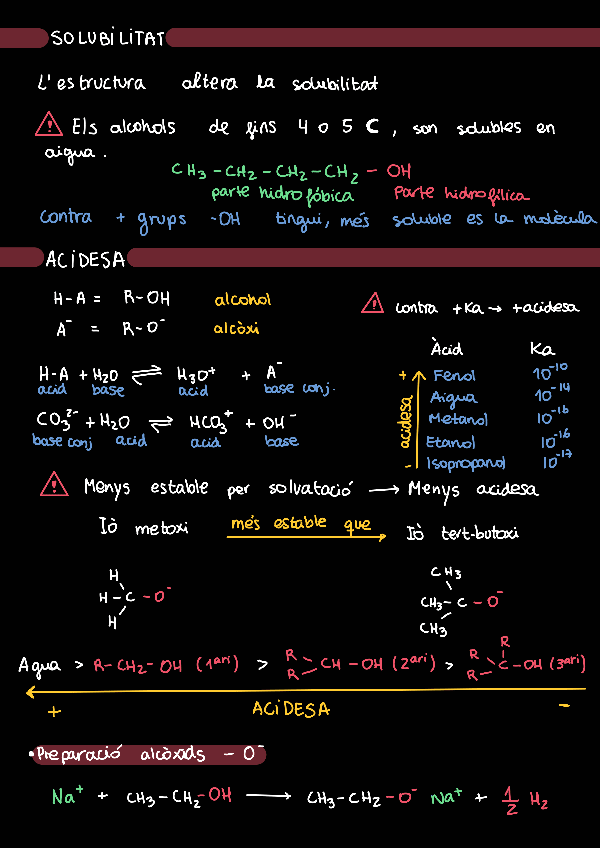 SOLUBILITAT
L'estructura altera la solubilitat
⚠ Els alcohols de fins 4 o 5 C, son solubles en
aigua.
CH₃-CH₂-CH₂-CH₂-OH
parte hidrofóbica parte hidrofílica
contra + grups -OH tingui, més soluble es la molècula
ACIDESA
H-A = R-OH alcohol
A⁻ = R-O⁻ alcòxi
⚠ contra +Ka → +acidesa
H-A + H₂O ⇌ H₃O⁺ + A⁻
acid base acid base conj.
CO₃²⁻ + H₂O ⇌ HCO₃⁺ + OH⁻
base conj acid acid base
Àcid Ka
+ Fenol 10⁻¹⁰
Aigua 10⁻¹⁴
Metanol 10⁻¹⁶
Etanol 10⁻¹⁶
- Isopropanol 10⁻¹⁷
acidesa
⚠ Menys estable per solvatació → Menys acidesa
Iò metoxi més estable que Iò tert-butoxi
H
H-C-O⁻
H
CH₃
CH₃-C-O⁻
CH₃
Agua > R-CH₂-OH (1ari) > R R CH-OH (2ari) > R R R C-OH (3ari)
+ ACIDESA -
• Preparació alcòxids - O⁻
Na⁺ + CH₃-CH₂-OH → CH₃-CH₂-O⁻ Na⁺ + ½ H₂